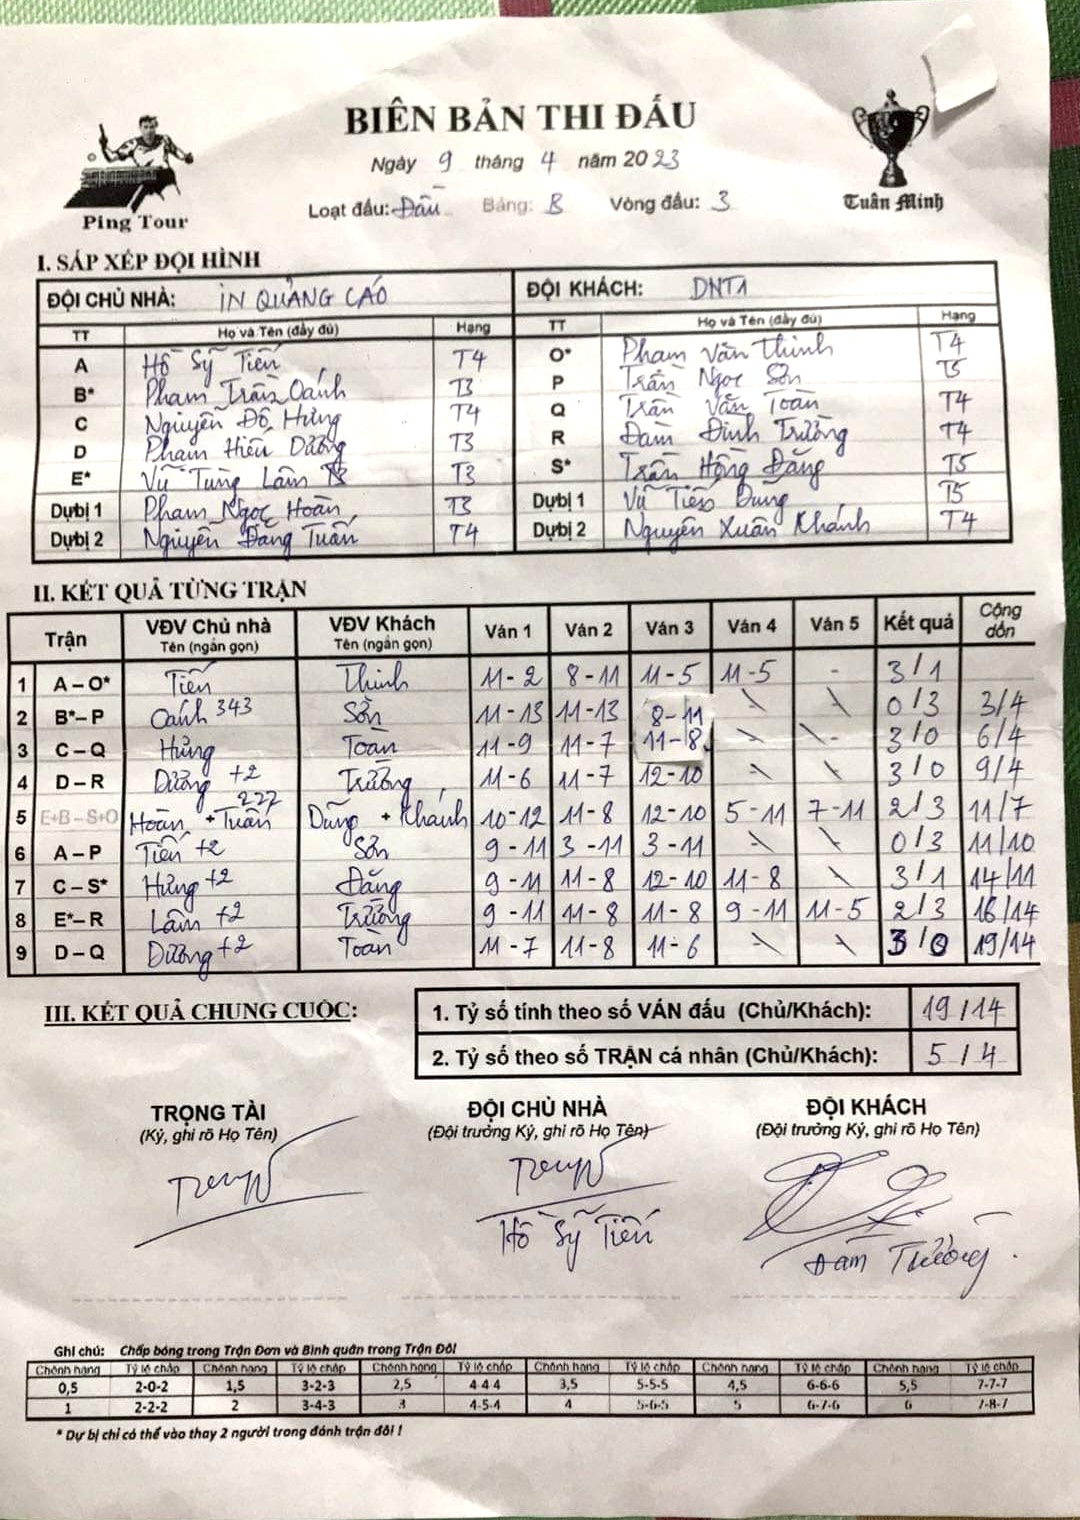 BIÊN BẢN THI ĐẤU
Ngày 9 tháng 4 năm 2023
Loạt đấu: Đầu Bảng: B Vòng đấu: 3
Ping Tour
Tuấn Minh
I. SẮP XẾP ĐỘI HÌNH
ĐỘI CHỦ NHÀ: IN QUẢNG CÁO ĐỘI KHÁCH: DNT1
TT Họ và Tên (đầy đủ) Hạng TT Họ và Tên (đầy đủ) Hạng
A Hồ Sỹ Tiến T4 O* Phạm Văn Thinh T4
B* Phạm Trần Oánh T3 P Trần Ngọc Sơn T5
C Nguyễn Đỗ Hưng T4 Q Trần Văn Toàn T4
D Phạm Hiếu Dương T3 R Đàm Đình Trường T4
E* Vũ Tùng Lâm T3 S* Trần Hồng Đăng T5
Dựbị 1 Phạm Ngọc Hoàn T3 Dựbị 1 Vũ Tiến Dũng T5
Dựbị 2 Nguyễn Đăng Tuấn T4 Dựbị 2 Nguyễn Xuân Khánh T4
II. KẾT QUẢ TỪNG TRẬN
Trận VĐV Chủ nhà VĐV Khách Ván 1 Ván 2 Ván 3 Ván 4 Ván 5 Kết quả Cộng dồn
Tên (ngắn gọn) Tên (ngắn gọn)
1 A – O* Tiến Thinh 11-2 8-11 11-5 11-5 - 3/1
2 B* – P Oánh 343 Sơn 11-13 11-13 8-11 0/3 3/4
3 C – Q Hưng Toàn 11-9 11-7 11-8 - 3/0 6/4
4 D – R Dương +2 Trường 11-6 11-7 12-10 3/0 9/4
5 E+B – S+O Hoàn + Tuấn 227 Dũng + Khánh 10-12 11-8 12-10 5-11 7-11 2/3 11/7
6 A – P Tiến +2 Sơn 9-11 3-11 3-11 0/3 11/10
7 C – S* Hưng +2 Đăng 9-11 11-8 12-10 11-8 3/1 14/11
8 E* – R Lâm +2 Trường 9-11 11-8 11-8 9-11 11-5 2/3 16/14
9 D – Q Dương +2 Toàn 11-7 11-8 11-6 3/0 19/14
III. KẾT QUẢ CHUNG CUỘC:
1. Tỷ số tính theo số VÁN đấu (Chủ/Khách): 19/14
2. Tỷ số theo số TRẬN cá nhân (Chủ/Khách): 5/4
TRỌNG TÀI ĐỘI CHỦ NHÀ ĐỘI KHÁCH
(Ký, ghi rõ Họ Tên) (Đội trưởng Ký, ghi rõ Họ Tên) (Đội trưởng Ký, ghi rõ Họ Tên)
Hồ Sỹ Tiến
Đàm Trường
Ghi chú: Chấp bóng trong Trận Đơn và Bình quân trong Trận Đôi
Chênh hạng Tỷ lệ chấp Chênh hạng Tỷ lệ chấp Chênh hạng Tỷ lệ chấp Chênh hạng Tỷ lệ chấp Chênh hạng Tỷ lệ chấp Chênh hạng Tỷ lệ chấp
0,5 2-0-2 1,5 3-2-3 2,5 4-4-4 3,5 5-5-5 4,5 6-6-6 5,5 7-7-7
1 2-2-2 2 3-4-3 3 4-5-4 4 5-6-5 5 6-7-6 6 7-8-7
* Dự bị chỉ có thể vào thay 2 người trong đánh trận đôi !